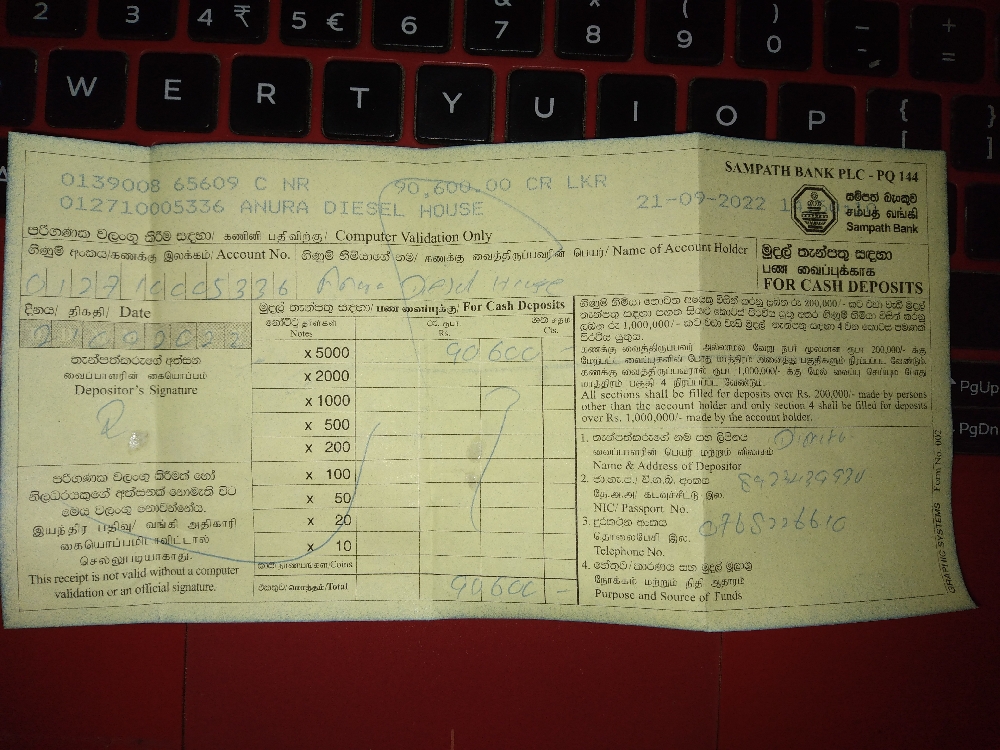 2 3 4 ₹ 5 € 6 & 7 * 8 ( 9 ) 0 _ - + =
W E R T Y U I O P { [ }
PgUp
PgDn
SAMPATH BANK PLC - PQ 144
0139008 65609 C NR 90,600.00 CR LKR
012710005336 ANURA DIESEL HOUSE 21-09-2022
සම්පත් බැංකුව
சம்பத் வங்கி
Sampath Bank
පරිගණක වලංගු කිරීම සඳහා/ கணினி பதிவிற்கு/ Computer Validation Only
ගිණුම් අංකය/கணக்கு இலக்கம்/ Account No. ගිණුම් හිමියාගේ නම/ கணக்கு வைத்திருப்பவரின் பெயர்/ Name of Account Holder
මුදල් තැන්පතු සඳහා
பண வைப்புக்காக
FOR CASH DEPOSITS
012710005336 Anura Diesel House
දිනය/ திகதி/ Date
21092022
මුදල් තැන්පතු සඳහා/ பண வைப்புக்கு/ For Cash Deposits
Notes Rs. Cts.
x 5000 90 600 -
x 2000
x 1000
x 500
x 200
x 100
x 50
x 20
x 10
Coins
Total 90,600 -
තැන්පත්කරුගේ අත්සන
வைப்பாளரின் கையொப்பம்
Depositor's Signature
පරිගණක වලංගු කිරීමක් හෝ
නිලධරයකුගේ අත්සනක් නොමැති විට
මෙය වලංගු නොවන්නේය.
இயந்திர பதிவு/ வங்கி அதிகாரி
கையொப்பமிடாவிட்டால்
செல்லுபடியாகாது.
This receipt is not valid without a computer
validation or an official signature.
All sections shall be filled for deposits over Rs. 200,000/- made by persons
other than the account holder and only section 4 shall be filled for deposits
over Rs. 1,000,000/- made by the account holder.
1. තැන්පත්කරුගේ නම සහ ලිපිනය
வைப்பாளரின் பெயர் மற்றும் விலாசம்
Name & Address of Depositor
2. ජා.හැ.ප./ වි.ග.බ. අංකය
தே.அ.அ/ கடவுச்சீட்டு இல.
NIC/ Passport No.
3. දුරකථන අංකය
தொலைபேசி இல.
Telephone No.
4. හේතුව/ කාරණය සහ මුදල් මූලාශ්‍ර
நோக்கம் மற்றும் நிதி ஆதாரம்
Purpose and Source of Funds
GRAPHIC SYSTEMS Form No. 002